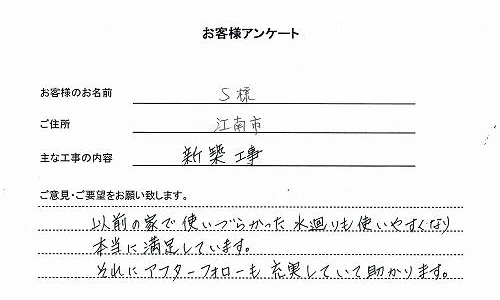 お客様アンケート
お客様のお名前 S様
ご住所 江南市
主な工事の内容 新築工事
ご意見・ご要望をお願い致します。
以前の家で使いづらかった水廻りも使いやすくなり
本当に満足しています。
それにアフターフォローも充実していて助かります。